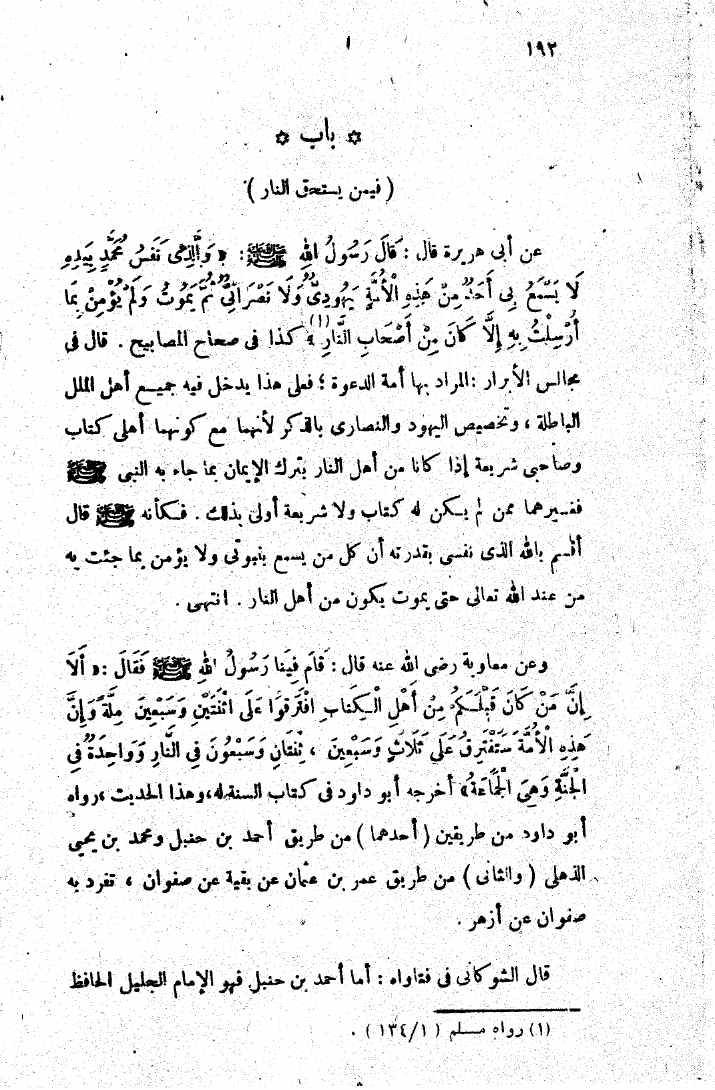 ١٩٢
✡ باب ✡
( فيمن يستحق النار )
عن أبى هريرة قال : قَالَ رَسُولُ اللهِ ﷺ : « وَالَّذِى نَفْسُ مُحَمَّدٍ بِيَدِهِ
لَا يَسْمَعُ بِى أَحَدٌ مِنْ هَذِهِ الْأُمَّةِ يَهُودِىٌّ وَلَا نَصْرَانِىٌّ ثُمَّ يَمُوتُ وَلَمْ يُؤْمِنْ بِمَا
أُرْسِلْتُ بِهِ إِلَّا كَانَ مِنْ أَصْحَابِ النَّارِ (١) » كذا فى صحاح المصابيح . قال فى
مجالس الأبرار : المراد بها أمة الدعوة ؛ فعلى هذا يدخل فيه جميع أهل الملل
الباطلة ، وتخصيص اليهود والنصارى بالذكر لأنهما مع كونهما أهلى كتاب
وصاحبى شريعة إذا كانا من أهل النار بترك الإيمان بما جاء به النبى ﷺ
فغيرهما ممن لم يكن له كتاب ولا شريعة أولى بذلك . فكأنه ﷺ قال
أقسم بالله الذى نفسى بقدرته أن كل من يسمع بنبوتى ولا يؤمن بما جئت به
من عند الله تعالى حتى يموت يكون من أهل النار . انتهى .
وعن معاوية رضى الله عنه قال : قَامَ فِينَا رَسُولُ اللهِ ﷺ فَقَالَ : « أَلَا
إِنَّ مَنْ كَانَ قَبْلَكُمْ مِنْ أَهْلِ الْكِتَابِ افْتَرَقُوا عَلَى اثْنَتَيْنِ وَسَبْعِينَ مِلَّةً وَإِنَّ
هَذِهِ الْأُمَّةَ سَتَفْتَرِقُ عَلَى ثَلَاثٍ وَسَبْعِينَ ، ثِنْتَانِ وَسَبْعُونَ فِى النَّارِ وَوَاحِدَةٌ فِى
الْجَنَّةِ وَهِىَ الْجَمَاعَةُ » أخرجه أبو داود فى كتاب السنة له، وهذا الحديث ،رواه
أبو داود من طريقين ( أحدهما ) من طريق أحمد بن حنبل ومحمد بن يحيى
الذهلى ( والثانى ) من طريق عمر بن عثمان عن بقية عن صفوان ، تفرد به
صفوان عن أزهر .
قال الشوكانى فى فتاواه : أما أحمد بن حنبل فهو الإمام الجليل الحافظ
(١) رواه مسلم ( ١/١٣٤ ) .